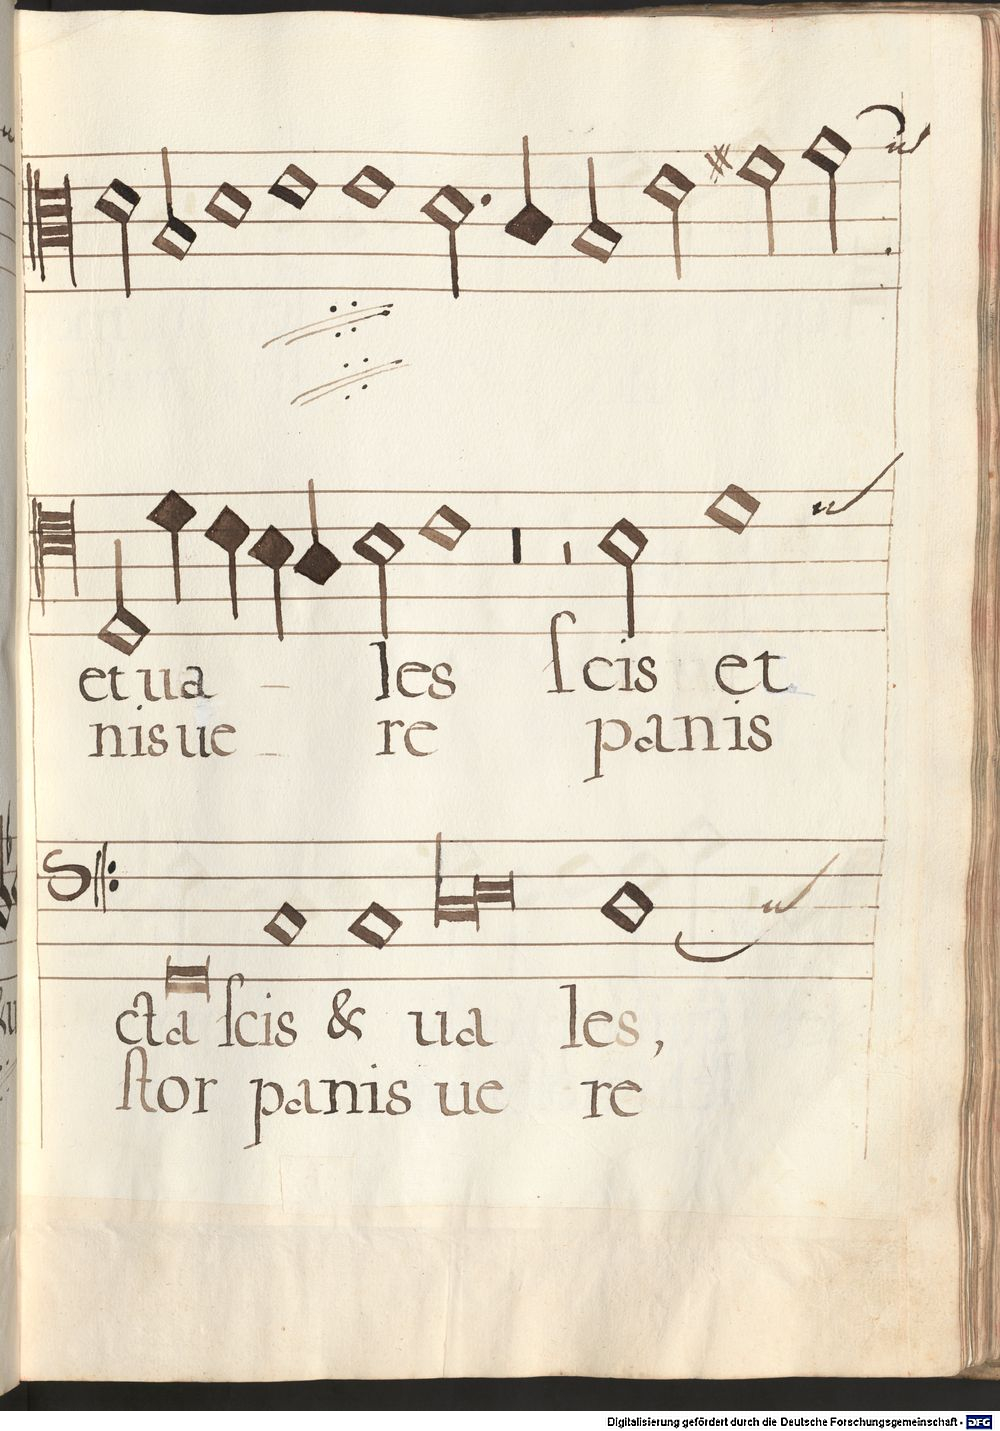 et ua - les ſcis et
nis ue - re panis
cta ſcis & ua les,
ſtor panis ue re
Digitalisierung gefördert durch die Deutsche Forschungsgemeinschaft - DFG